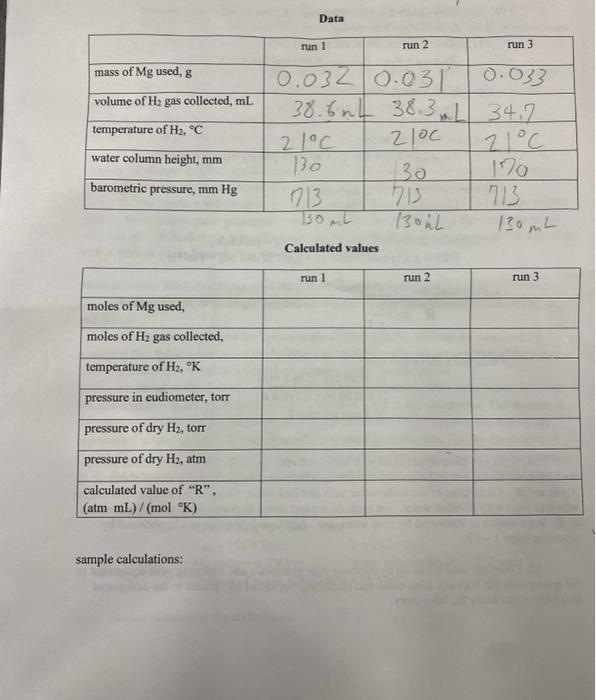 Data
run 1 run 2 run 3
mass of Mg used, g 0.032 0.031 0.033
volume of H₂ gas collected, mL 38.6mL 38.3mL 34.7
temperature of H₂, °C 21°C 21°C 21°C
water column height, mm 130 30 170
barometric pressure, mm Hg 713 713 713
130 mL 130 mL 130 mL
Calculated values
run 1 run 2 run 3
moles of Mg used,
moles of H₂ gas collected,
temperature of H₂, °K
pressure in eudiometer, torr
pressure of dry H₂, torr
pressure of dry H₂, atm
calculated value of “R”,
(atm mL) / (mol °K)
sample calculations: